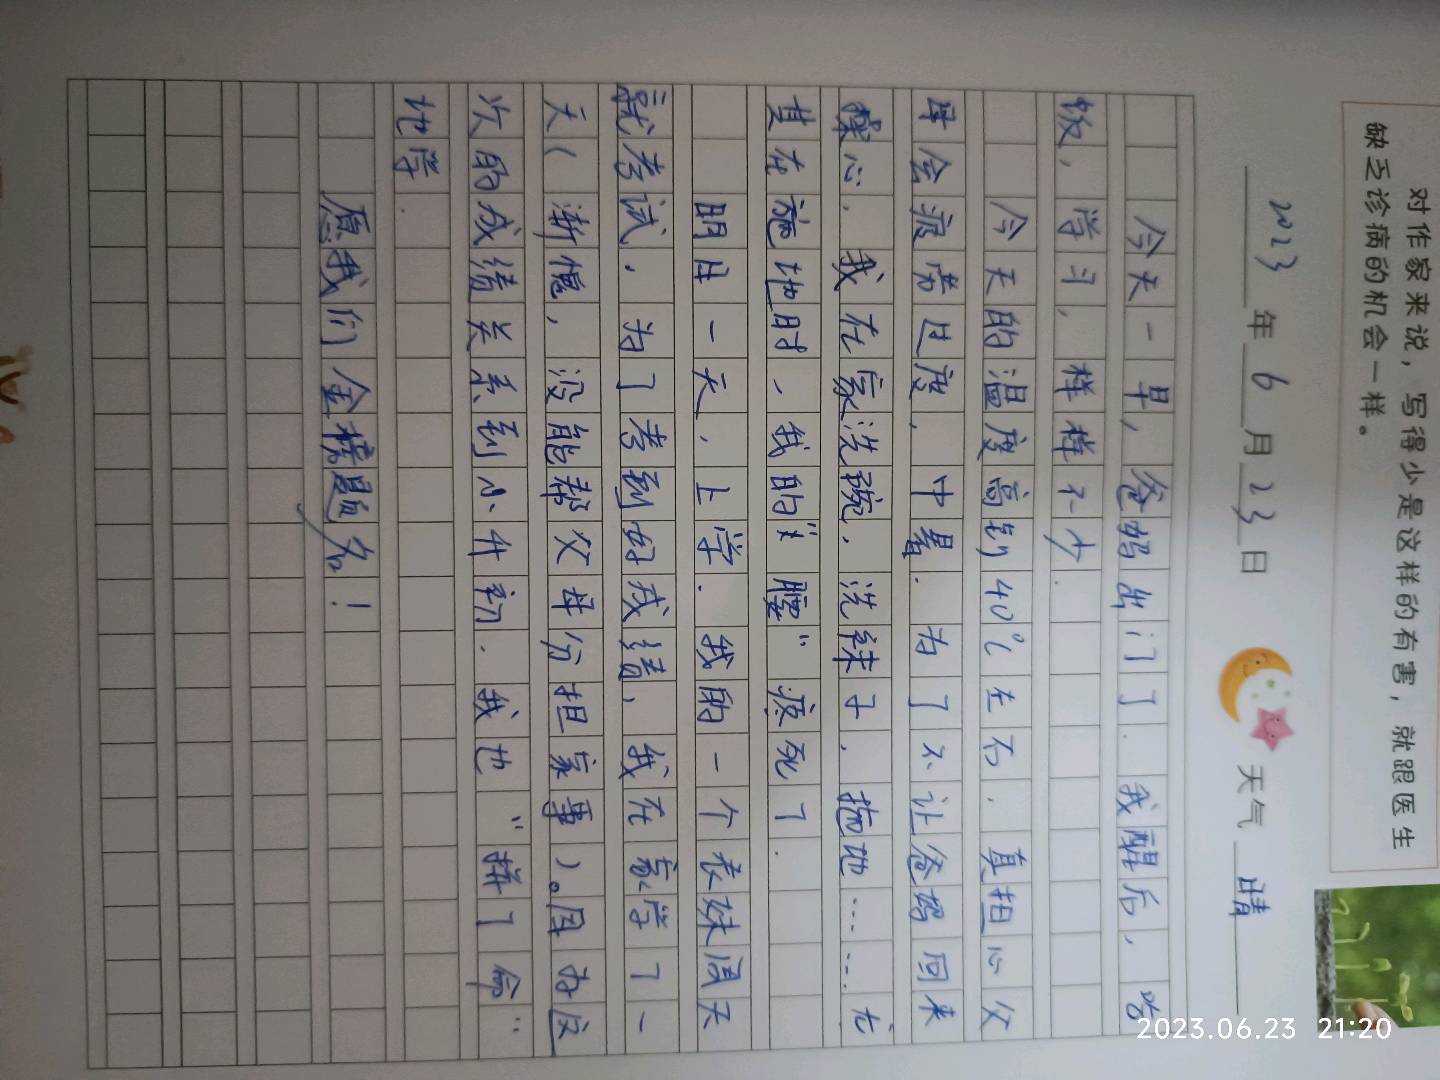 对作家来说，写得少是这样的有害，就跟医生
缺乏诊病的机会一样。
2023年6月23日 天气 晴
今天一早，爸妈出门了.我醒后，吃
饭，学习，样样不少.
今天的温度高到40℃左右.真担心父
母会疲劳过度，中暑.为了不让爸妈回来
操心，我在家洗碗，洗袜子，拖地……尤
其在拖地时，我的“腰”疲死了.
明日一天，上学.我的一个表妹周天
就考试，为了考到好成绩，我在家学了一
天（惭愧，没能帮父母分担家事）。因为这
次的成绩关系到小升初.我也“拼了命”
地学.
愿我们金榜题名！
2023.06.23 21:20